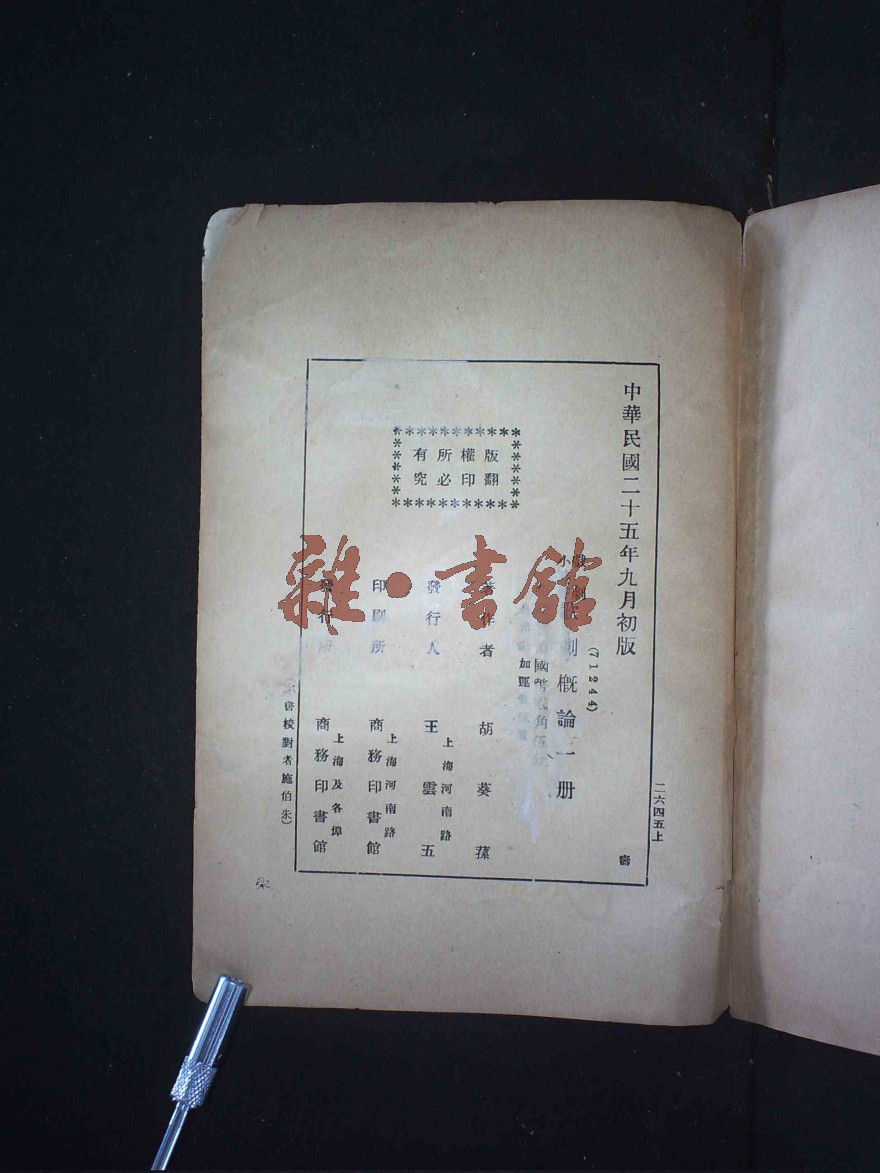 中華民國二十五年九月初版
二六四五上
(71244)
小戲
劇概論一册
國幣 角
加運
版權所有
翻印必究
著作者 胡葵蓀
發行人 王雲五
上海河南路
印刷所 商務印書館
上海河南路
發行所 商務印書館
上海及各埠
書校對者施伯朱)
雜·書館